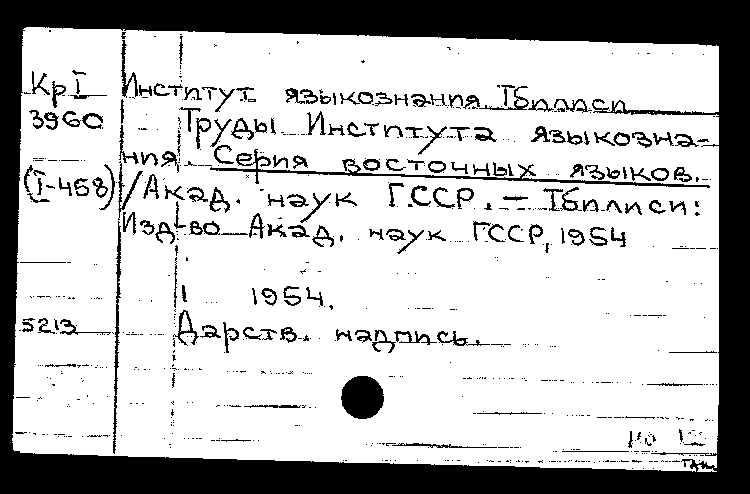 Кр I Институт языкознания. Тбилиси
3960 Труды Института языкозна-
ния. Серия восточных языков.
(I-458) /Акад. наук Г.ССР. – Тбилиси:
Изд-во Акад. наук ГССР, 1954
1 1954.
5213 Дарств. надпись.